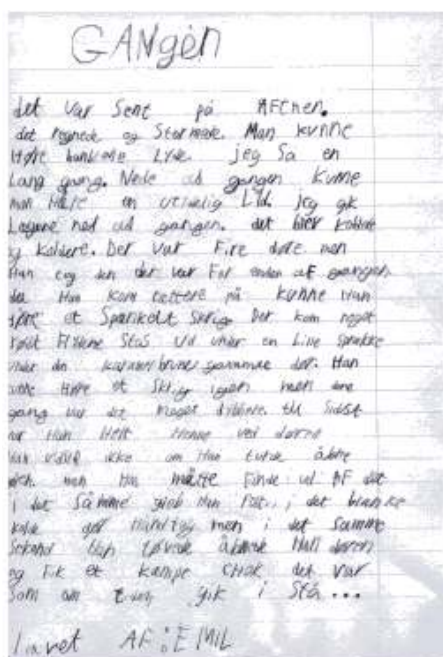 GANgen
det var Sent på AFtnen.
det regnede og Stormede. Man kunne
Høre bankende Lyde. jeg Så en
Lang gang. Nede ad gangen kunne
man Høre en Lyd jeg gik
Længere ned ad gangen. det blev koldere
og koldere. Der var Fire døre men
Han tog den der var For enden aF gangen
da Han kom tættere på kunne Han
Høre et Skrig Der kom noget
rødt Ud under en Lille Sprække
under den gammle dør. Han
Høre et Skrig igen men denne
gang var det meget til Sidst
var Han Helt Henne ved døren
Han vidste ikke om Han turde åbne
den. men Han måtte Finde ud AF det
i det Såmme greb Han Fat i det blanke
kolde dør Håndtag men i det Samme
Sekund Han tøvede åbnede Han døren
og Fik et kæmpe CHok det var
Som om gik i Stå...
AF: EMIL